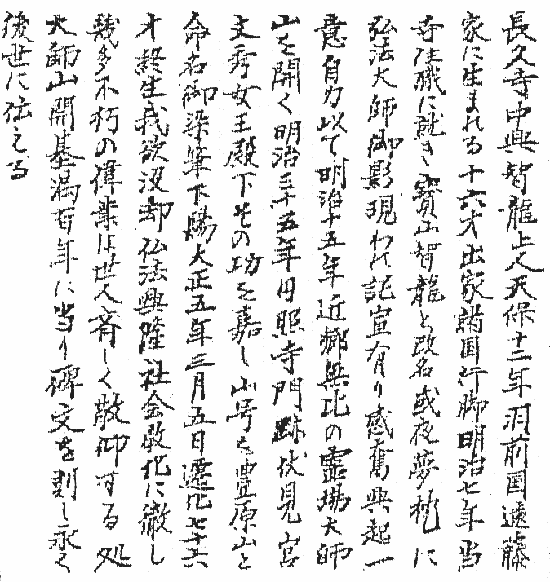 長久寺中興智龍上人天保十二年羽前国遠藤
家に生まれる十六才出家諸国行脚明治七年当
寺住職に就き寳山智龍と改名或夜夢枕に
弘法大師御影現われ記宣有り感奮興起一
意自力以て明治十五年近郷無比の霊場大師
山を開く明治三十五年円照寺門跡伏見宮
文秀女王殿下その功を嘉し山号を豊原山と
命名御染筆下賜大正五年三月五日遷化七十六
才終生我欲没却仏法興隆社会教化に徹し
幾多不朽の偉業は世人斉しく敬仰する処
大師山開基満百年に当り碑文を刻し永く
後世に伝える